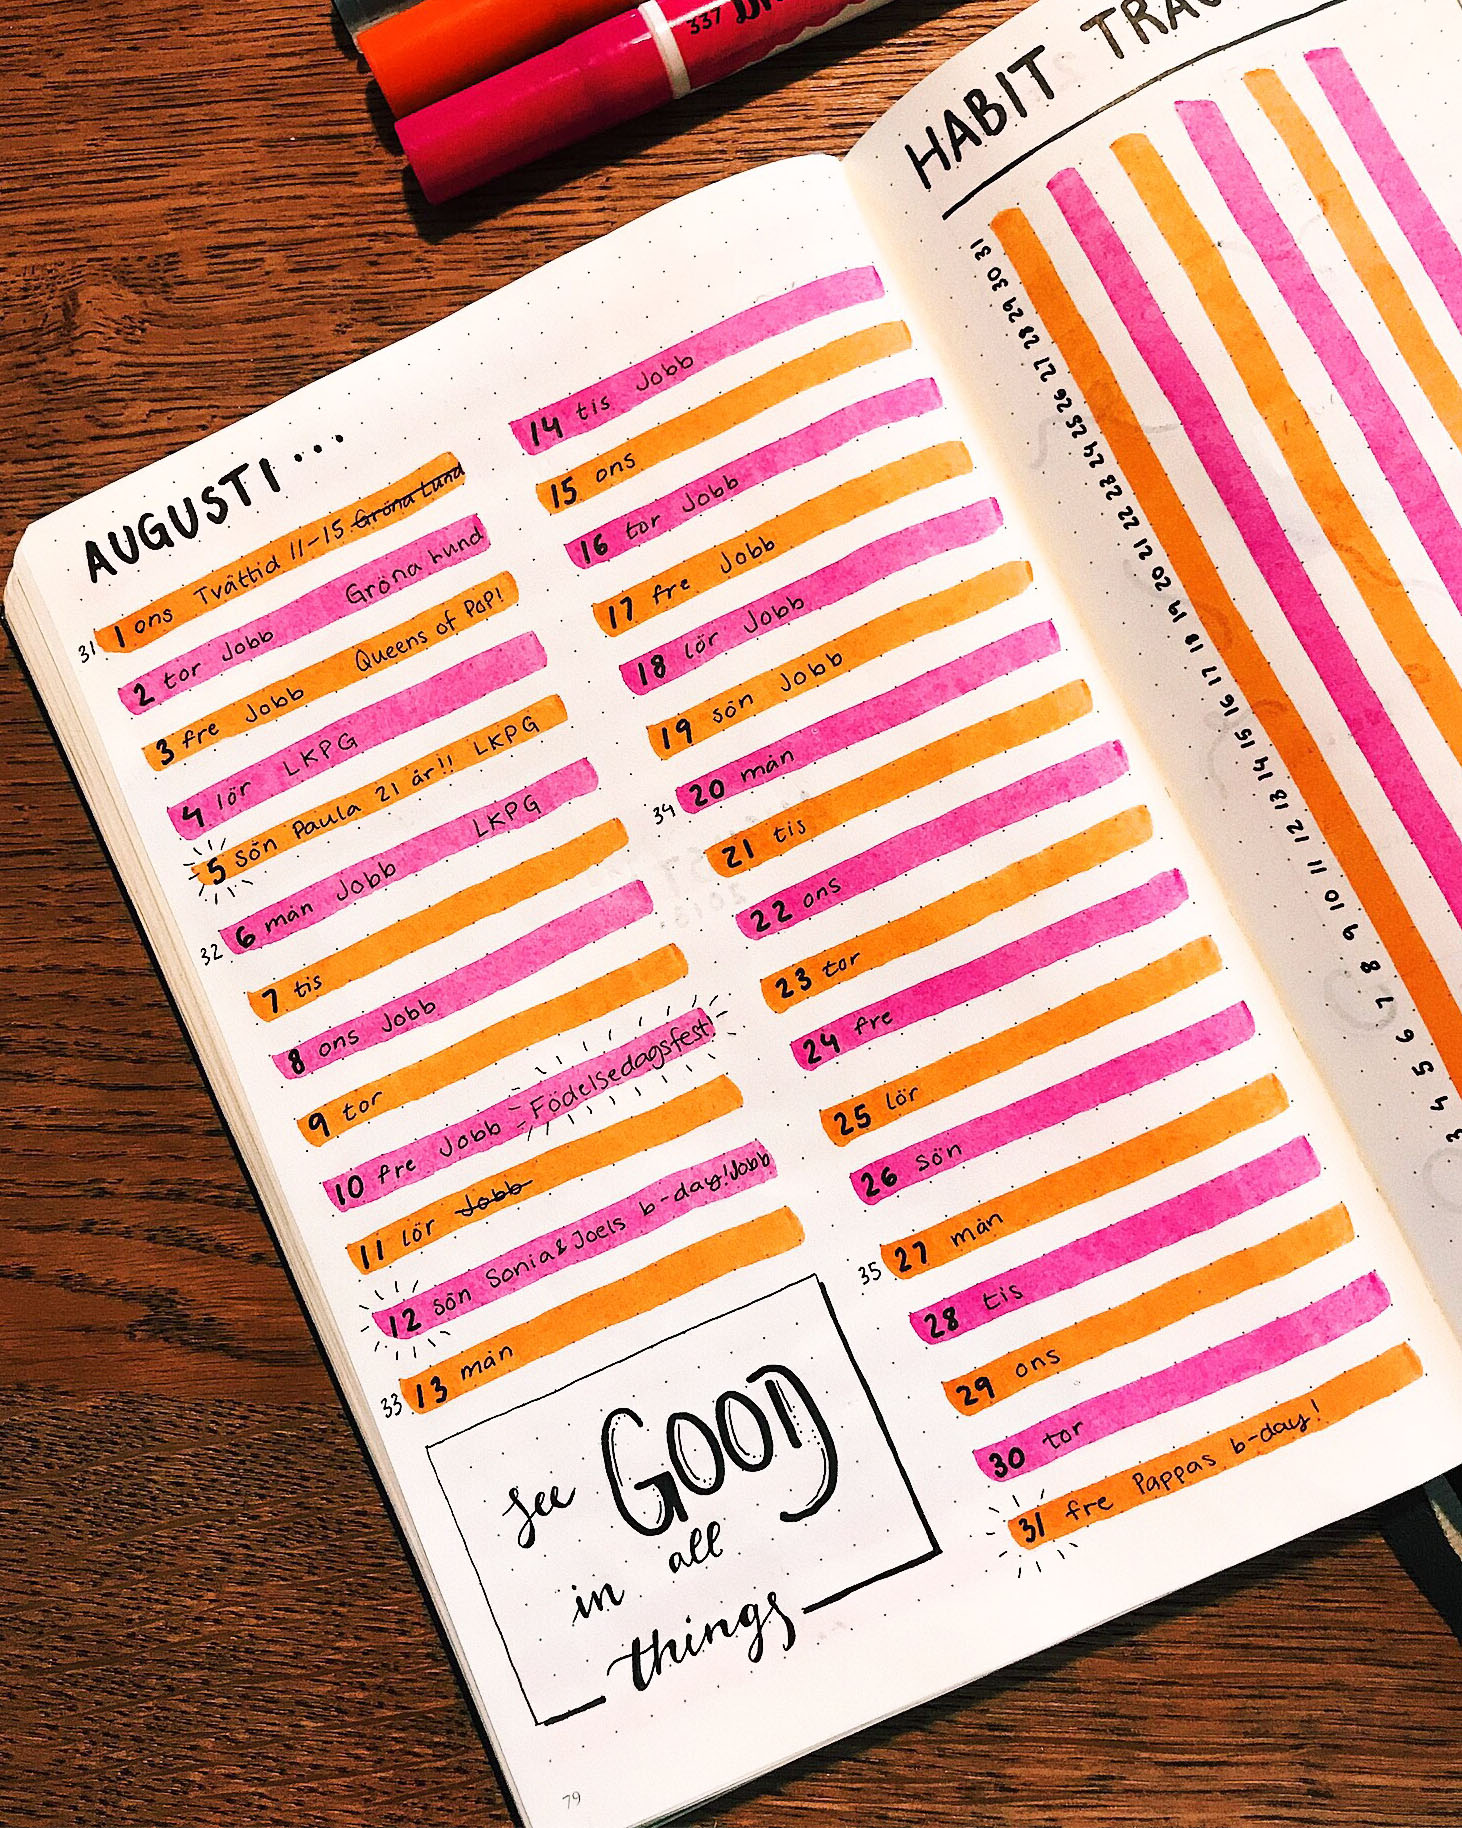 337
HABIT
AUGUSTI...
31 1 ons Tvättid 11-15 Gröna Lund
2 tor Jobb Gröna Lund
3 fre Jobb Queens of PoP!
4 lör LKPG
5 sön Paula 21 år!! LKPG
32 6 mån Jobb LKPG
7 tis
8 ons Jobb
9 tor
10 fre Jobb Födelsedagsfest!
11 lör Jobb
12 sön Sonia & Joels b-day! Jobb
33 13 mån
14 tis Jobb
15 ons
16 tor Jobb
17 fre Jobb
18 lör Jobb
19 sön Jobb
34 20 mån
21 tis
22 ons
23 tor
24 fre
25 lör
26 sön
35 27 mån
28 tis
29 ons
30 tor
31 fre Pappas b-day!
See GOOD
in all
things
79
31 30 29 28 27 26 25 24 23 22 21 20 19 18 17 16 15 14 13 12 11 10 9 8 7 6 5 4 3